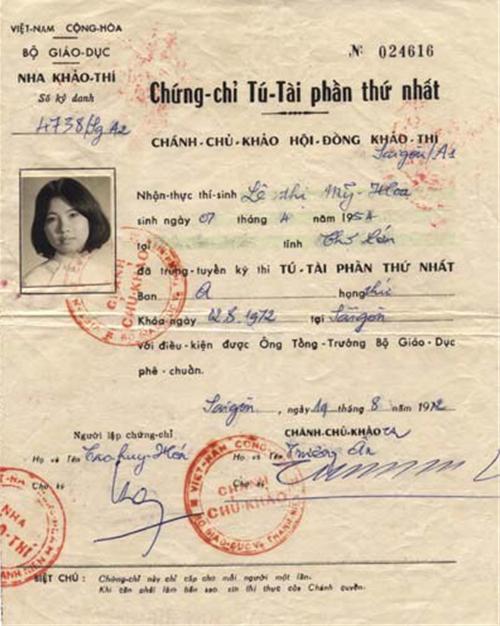 VIỆT-NAM CỘNG-HÒA
BỘ GIÁO-DỤC
NHA KHẢO-THÍ
Số ký danh
4738/Sg A2
№ 024616
Chứng-chỉ Tú-Tài phần thứ nhất
CHÁNH-CHỦ-KHẢO HỘI-ĐỒNG KHẢO-THÍ
Saigon/A1
Nhận-thực thí-sinh Lê thị Mỹ-Hoa
sinh ngày 07 tháng 4 năm 1954
tại tỉnh Chợ Lớn
đã trúng-tuyển kỳ thi TÚ-TÀI PHẦN THỨ NHẤT
Ban A hạng thứ
Khóa ngày 2.8.1972 tại Saigòn
với điều-kiện được Ông Tổng-Trưởng Bộ Giáo-Dục
phê-chuẩn.
Saigòn, ngày 19 tháng 8 năm 1972
Người lập chứng-chỉ
Họ và Tên
Chữ ký
CHÁNH-CHỦ-KHẢO
Họ và Tên Trường Ân
Chữ ký
CHÁNH
CHỦ-KHẢO
VIỆT-NAM CỘNG
CHÁNH
CHỦ-KHẢO
BỘ GIÁO-DỤC VÀ THANH
NHA
BIỆT CHÚ : Chứng-chỉ này chỉ cấp cho mỗi người một lần.
Khi cần phải làm bản sao, xin thị thực của Chánh quyền.